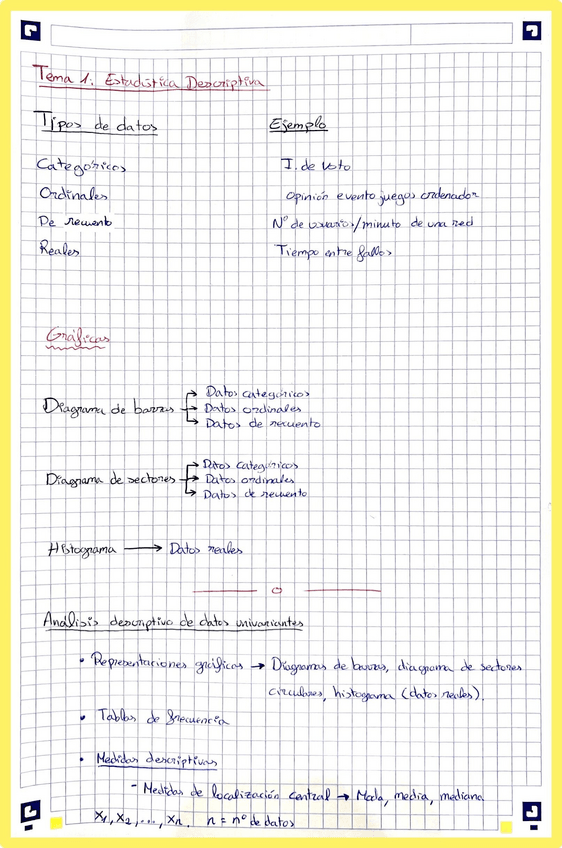 Tema 1. Estadística Descriptiva
Tipos de datos
Ejemplo
Categóricos
I. de voto
Ordinales
Opinión evento juegos ordenador
De recuento
Nº de usuarios/minuto de una red
Reales
Tiempo entre fallos
Gráficas
Diagrama de barras → Datos categóricos
→ Datos ordinales
→ Datos de recuento
Diagrama de sectores → Datos categóricos
→ Datos ordinales
→ Datos de recuento
Histograma → Datos reales
Análisis descriptivo de datos univariantes
• Representaciones gráficas → Diagramas de barras, diagrama de sectores
circulares, histograma (datos reales).
• Tablas de frecuencia
• Medidas descriptivas
- Medidas de localización central → Moda, media, mediana
X1, X2, ..., Xn. n = nº de datos